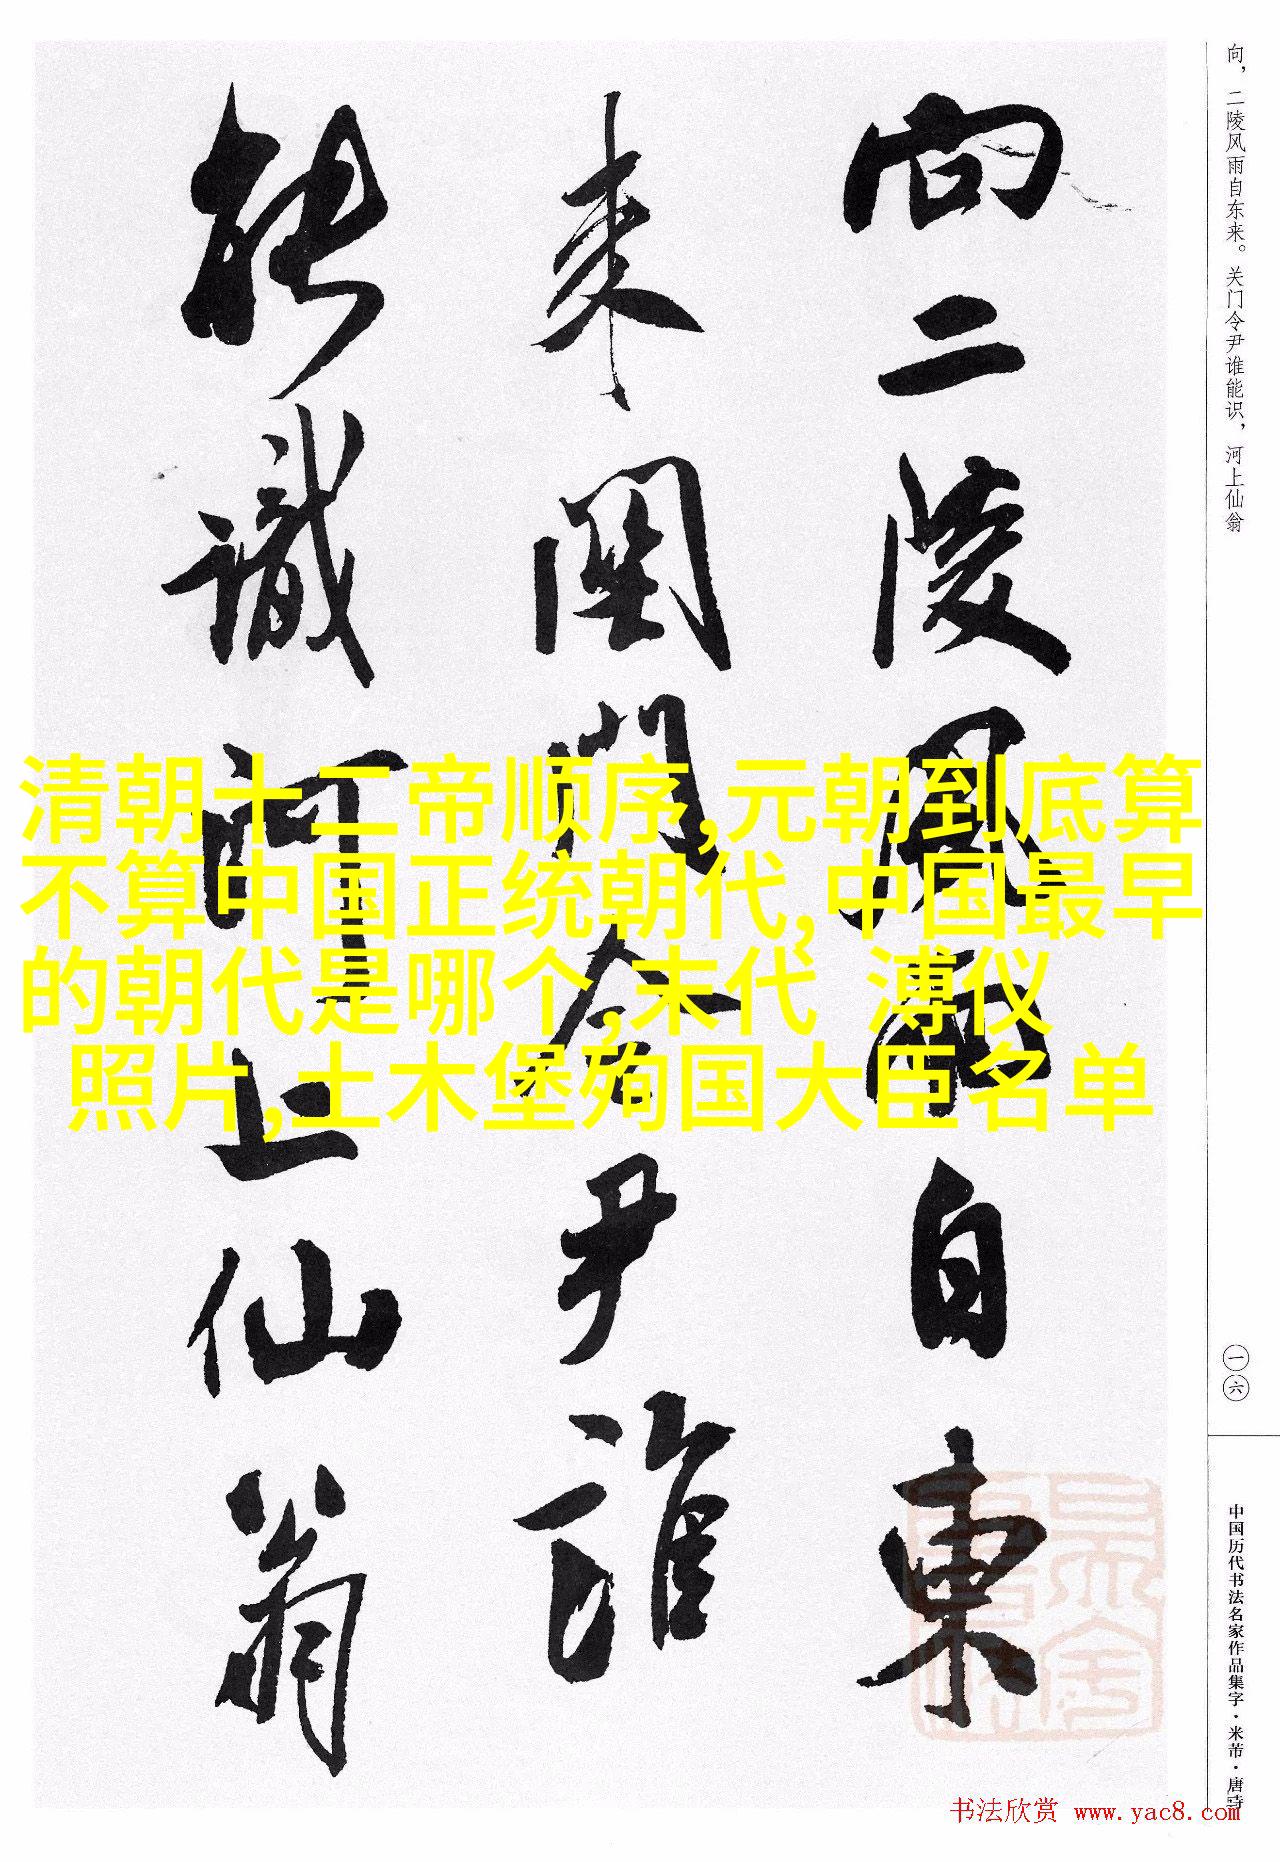 向，二陵风雨自东来。关门令尹谁能识，河上仙翁
一六
中国历代书法名家作品集字·米芾·唐诗
向二陵風雨自東
来關門令尹誰
能識河上仙翁
清朝十二帝顺序,元朝到底算
不算中国正统朝代,中国最早
的朝代是哪个,末代 溥仪
照片,土木堡殉国大臣名单
书法欣赏 www.yac8.com